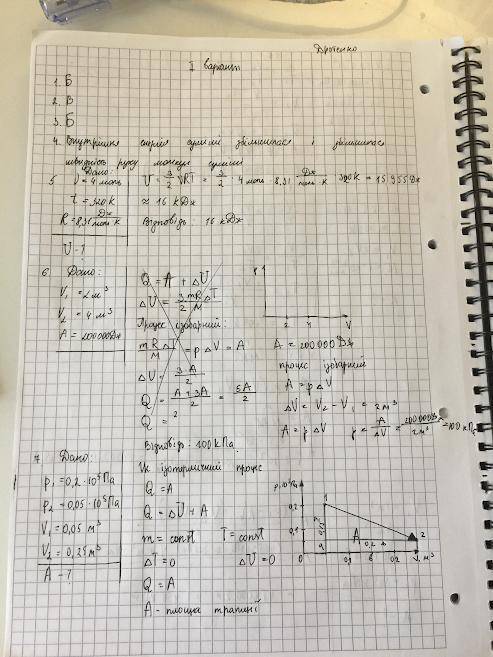 Дротенко
I варіант
1. Б
2. В
3. Б
4. Внутрішня енергія суміші збільшилась і збільшилась
швидкість руху молекул суміші
5 Дано:
ν = 4 моль
t = 320 К
R = 8,31 Дж/моль·К
U - ?
U = 3/2 νRT = 3/2 · 4 моль · 8,31 Дж/моль·К · 320 К = 15 955 Дж
≈ 16 кДж
Відповідь: 16 кДж
6 Дано:
V₁ = 2 м³
V₂ = 4 м³
A = 200000 Дж
Q = A + ΔU
ΔU = 3/2 mR/M ΔT
Процес ізобарний:
mR/M ΔT = pΔV = A
ΔU = 3A/2
Q = A+3A/2 = 5A/2
Q = 2
Відповідь: 100 кПа
P
2 4 V
A = 200 000 Дж
процес ізобарний
A = pΔV
ΔV = V₂ - V₁ = 2 м³
A = pΔV p = A/ΔV = 200000Дж/2 м³ = 100 кПа
7 Дано:
p₁ = 0,2 · 10⁵ Па
p₂ = 0,05 · 10⁵ Па
V₁ = 0,05 м³
V₂ = 0,25 м³
A - ?
Це ізотермічний процес
Q = A
Q = ΔU + A
m = const T = const
ΔT = 0 ΔU = 0
Q = A
A - площа трапеції
p, 10⁵ Па
0,2
0,1
0
1
2
A
0,2
V, м³